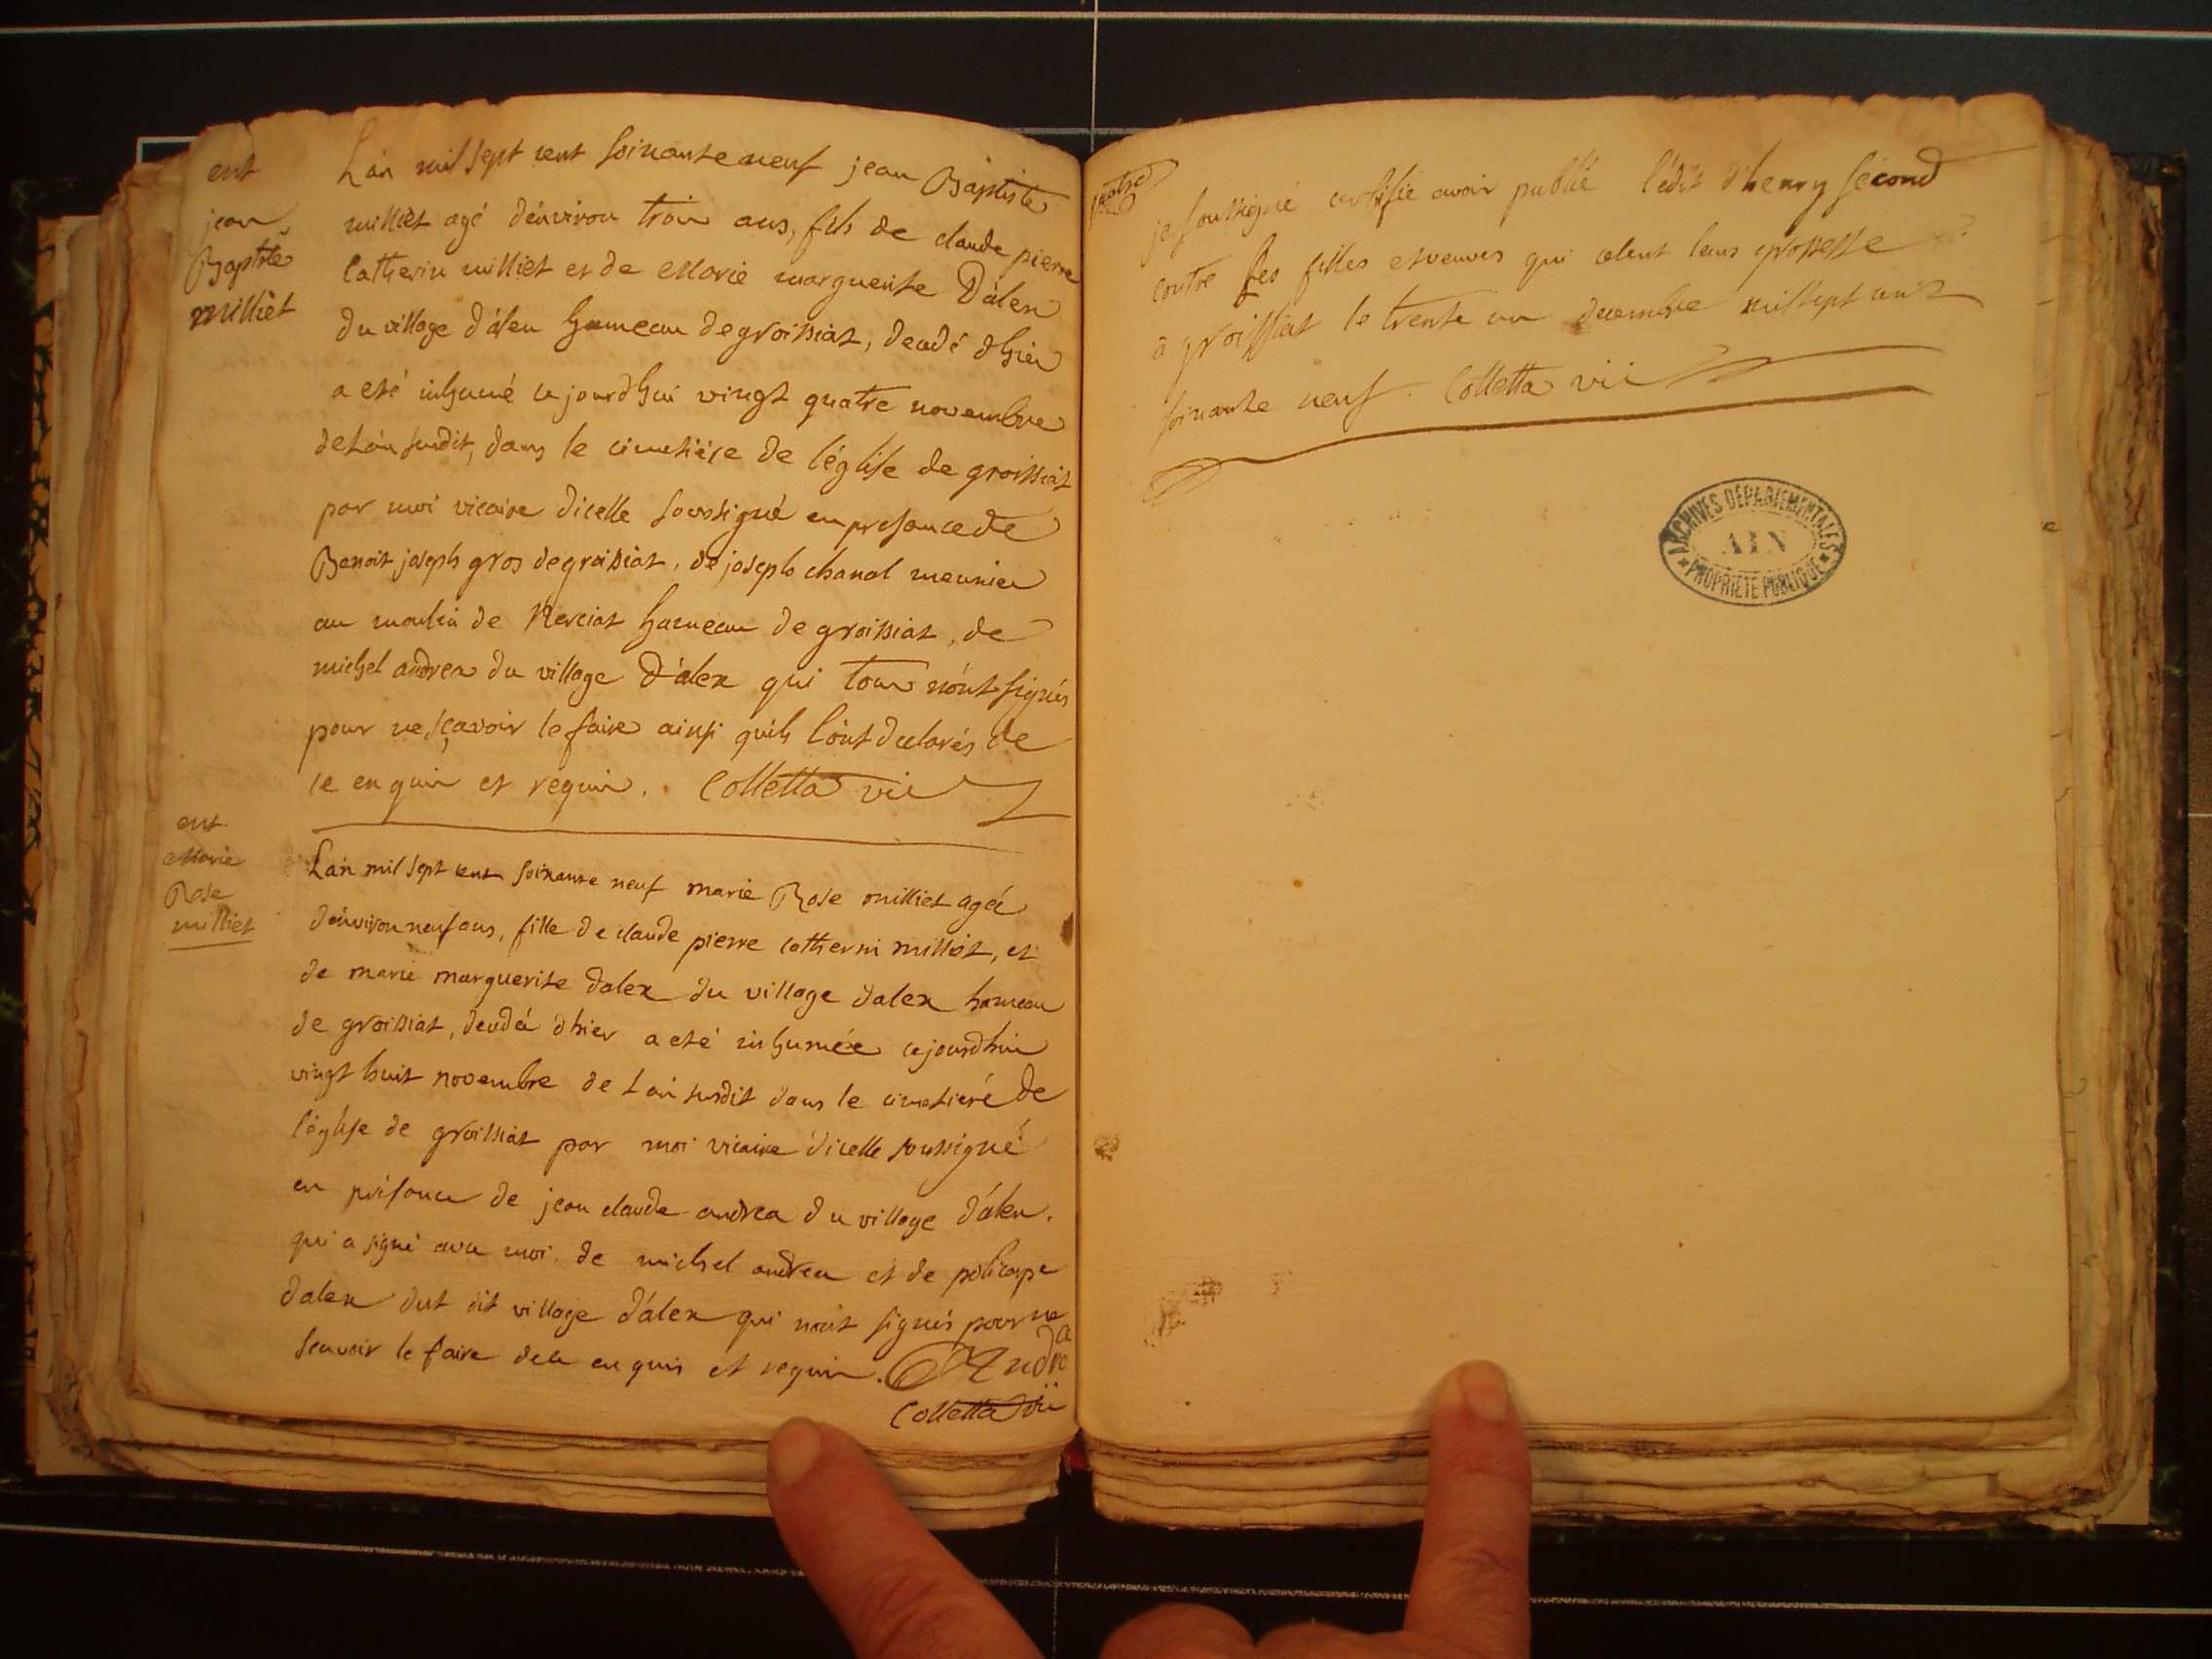 ent
jean
Baptiste
milliet
L'an mil sept cent soixante neuf jean Baptiste
milliet agé d'environ trois ans, fils de claude pierre
Catherin milliet et de Marie marguerite D'alex
du village d'alex hameau de groissiat, decedé d'hier
a eté inhumé ce jourd'hui vingt quatre novembre
de L'an susdit, dans le cimetiére de l'église de groissiat
par moi vicaire d'icelle soussigné en presence de
Benoit joseph gros de groissiat, de joseph chanal meunier
au moulin de Nerciat hameau de groissiat, de
michel andrea du village D'alex qui tous n'ont signés
pour ne sçavoir le faire ainsi quils l'ont declarés de
ce enquis et requis. Colletta vic
ent
Marie
Rose
milliet
L'an mil sept cent soixante neuf marie Rose milliet agée
d'environ neuf ans, fille de claude pierre catherin milliet, et
de marie marguerite dalex du village dalex hameau
de groissiat, decedée d'hier a eté inhumée cejourdhui
vingt huit novembre de L'an susdit dans le cimetiere de
l'église de groissiat par moi vicaire d'icelle soussigné
en présence de jean claude andrea du village d'alex.
qui a signé avec moi, de michel andrea et de policarpe
dalex dut dit village d'alex qui n'ont signés pour ne
scavoir le faire de ce enquis et requis. Andrea
Colletta vic
quatre
je soussigné certifie avoir publié l'edit d'henry second
contre les filles et veuves qui celent leurs grossesse
a groissiat le trente un decembre mil sept cent
soixante neuf. Colletta vic
ARCHIVES DÉPARTEMENTALES
AIN
PROPRIÉTÉ PUBLIQUE